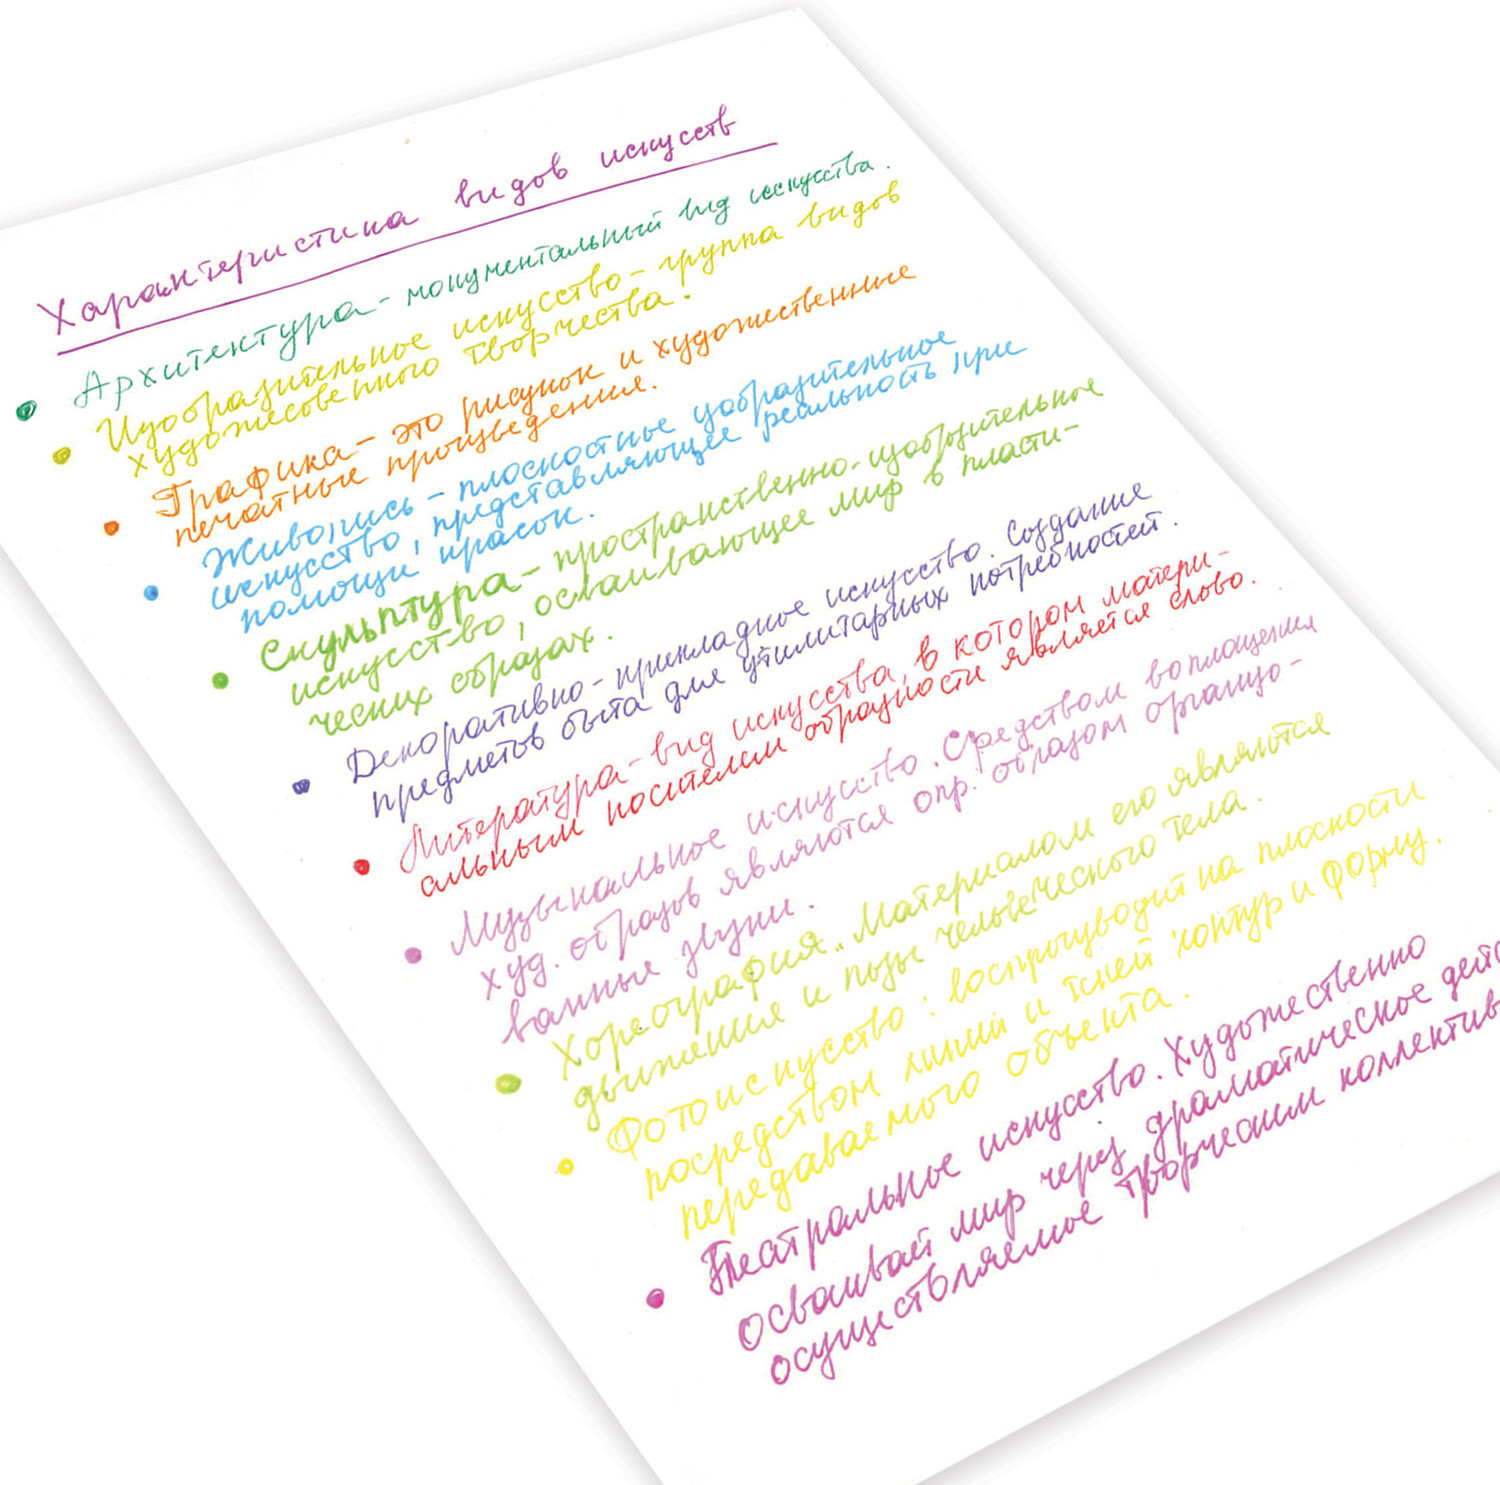 Характеристика видов искусств
Архитектура - монументальный вид искусства.
Изобразительное искусство - группа видов
художественного творчества.
Графика - это рисунок и художественные
печатные произведения.
Живопись - плоскостные изобразительное
искусство, представляющее реальность при
помощи красок.
Скульптура - пространственно-изобразительное
искусство, осваивающее мир в пласти-
ческих образах.
Декоративно-прикладное искусство. Создание
предметов быта для утилитарных потребностей.
Литература - вид искусства, в котором матери-
альным носителем образности является слово.
Музыкальное искусство. Средством воплощения
худ. образов являются опр. образом организо-
ванные звуки.
Хореография. Материалом его являются
движения и позы человеческого тела.
Фотоискусство: воспроизводит на плоскости
посредством линий и теней контур и форму
передаваемого объекта.
Театральное искусство. Художественно
осваивает мир через драматическое дейс
осуществляемое творческим коллектив